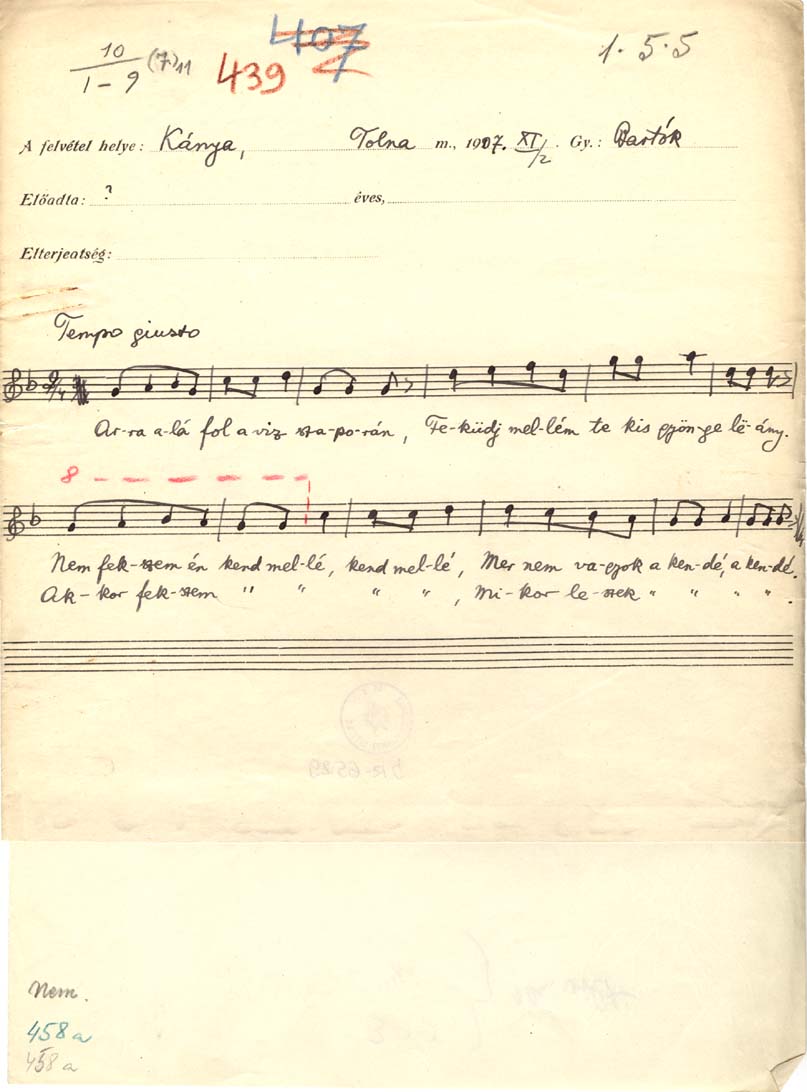 10
1-9 (7) 11
407
439
1. 5. 5
A felvétel helye: Kánya, Tolna m., 1907. XI/2. Gy.: Bartók
Előadta: ? éves,
Elterjeatség:
Tempo giusto
Ar-ra a-lá fol a viz sza-po-rán, Fe-küdj mel-lém te kis gyön-ge lë-ány.
8
Nem fek-szem én kend mel-lé, kend mel-lé, Mer nem va-gyok a ken-dé, a ken-dé.
Ak-kor fek-szem " " " ", Mi-kor le-szek " " " ".
BR-6529
Nem.
458a
458a